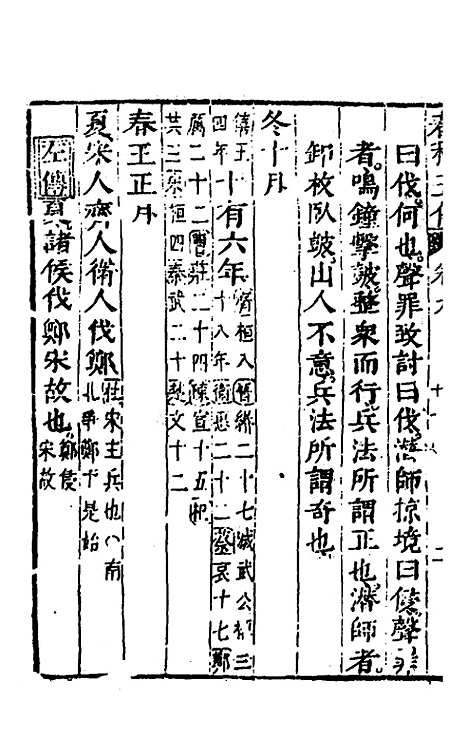 曰伐何也聲罪致討曰伐潛師掠境曰侵聲罪
者鳴鐘擊鼓整衆而行兵法所謂正也潛師者
卸枚臥鼓出人不意兵法所謂奇也
冬十月
僖王四年十有六年齊桓八晉緡二十七滅武公稱三十八年衛惠二十二蔡哀十七鄭
厲二十二曹莊二十四陳宣十五杞
共三宋桓四秦武二十楚文十二
春王正月
夏宋人齊人衛人伐鄭宋主兵也南北爭鄭于是始
左傳夏諸侯伐鄭宋故也鄭侵宋故